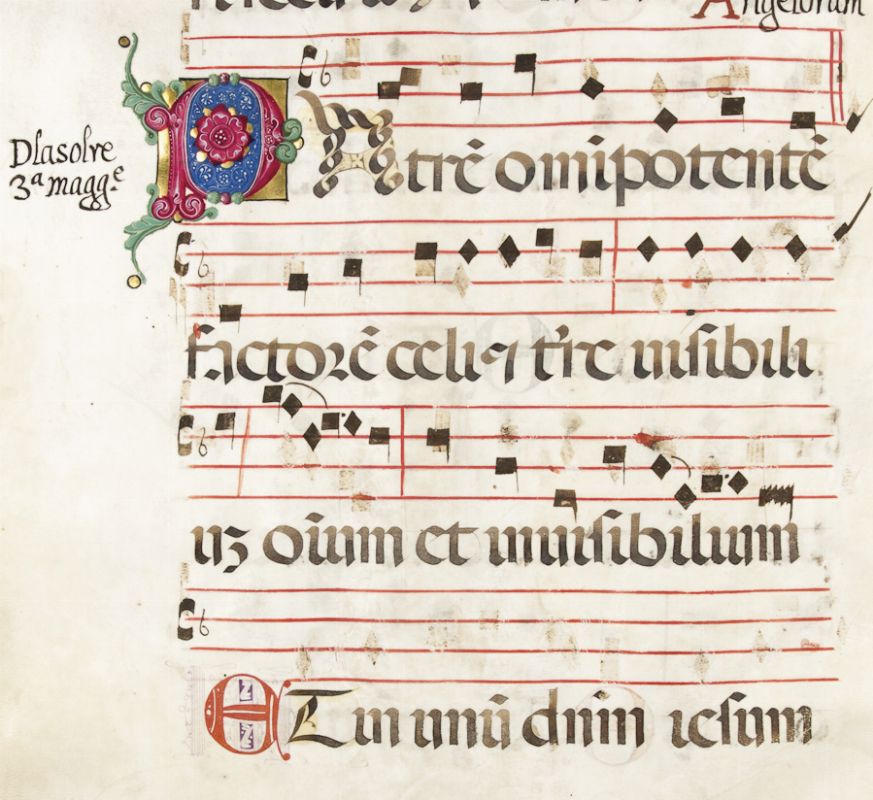 Angelorum
Dlasolre
3ª maggᵉ.
PAtrē omĩpotentē
factorē celi ⁊ t're uisibili
uʒ oīum et inuisibilium
ET in unū dnm iesum